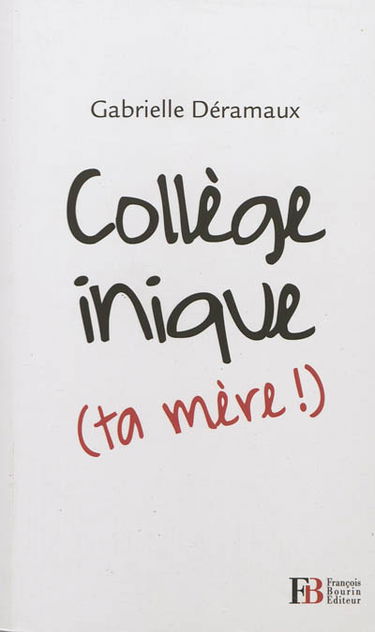 Gabrielle Déramaux
Collège
inique
(ta mère !)
FB
François
Bourin
Editeur